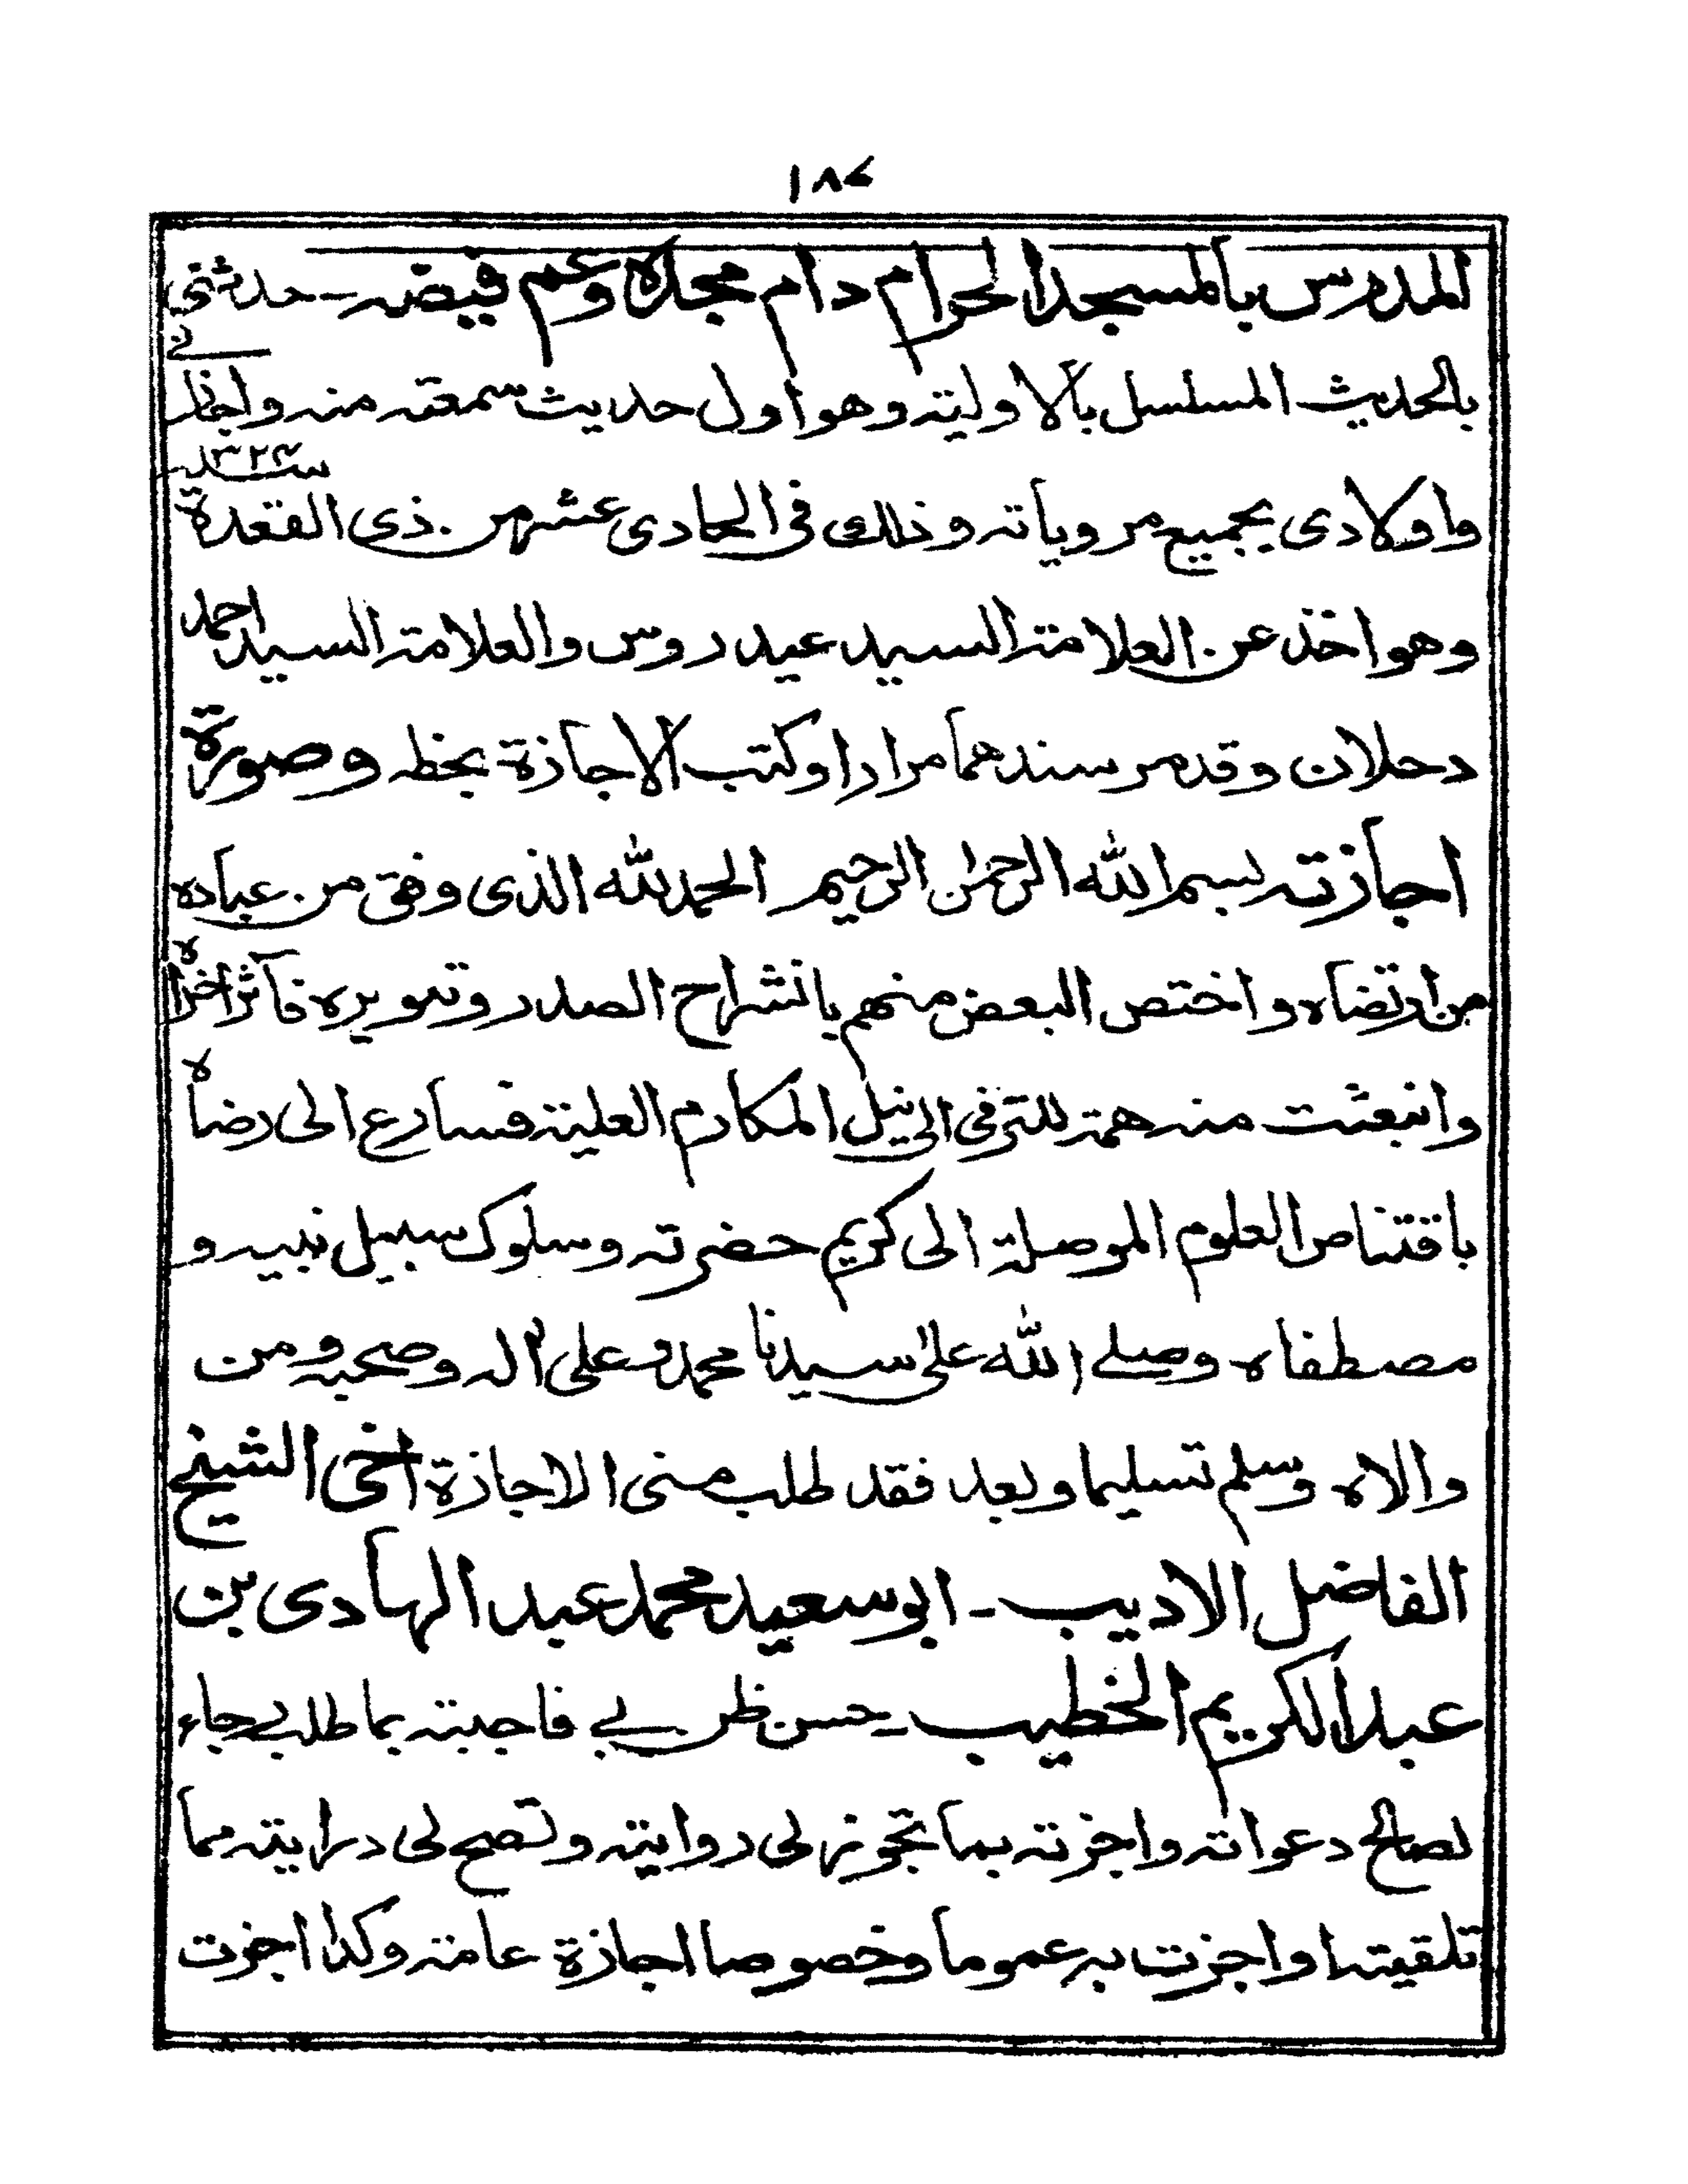 ١٨٤
المدرس بالمسجد الحرام دام مجده وعم فيضه ـ حدثني
بالحديث المسلسل بالاولية وهو اول حديث سمعته منه واجازني
واولادى بجميع مروياته وذلك فى الحادى عشر من ذى القعدة سنه ١٣٢٤
وهو اخذ عن العلامة السيد عيدروس والعلامة السيد احمد
دحلان وقد مر سندهما مرارا وكتب الاجازة بخطه وصورة
اجازته بسم الله الرحمن الرحيم الحمد لله الذى وفق من عباده
من ارتضاه واختص البعض منهم بانشراح الصدر وتنويره فآثر اخراه
وانبعثت منه همة للترقى الى نيل المكارم العلية فسارع الى رضاه
باقتناص العلوم الموصلة الى كريم حضرته وسلوك سبيل نبيه و
مصطفاه وصلے الله على سيدنا محمد وعلى اله وصحبه ومن
والاه وسلم تسليما وبعد فقد طلب منى الاجازة اخى الشيخ
الفاضل الاديب ـ ابو سعيد محمد عبد الهادى بن
عبد الكريم الخطيب ـ حسن ظن بے فاجبته بما طلب رجاء
لصالح دعواته واجزته بما تجوز لى روايته وتصح لى درايته مما
تلقيته او اجزت به عموما وخصوصا اجازة عامة وكذا اجزت